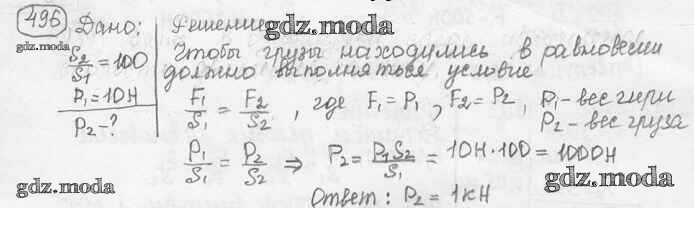 496 Дано: Решение
gdz.moda
S₂/S₁ = 100 Чтобы грузы находились в равновесии
должно выполняться условие
P₁ = 10Н F₁/S₁ = F₂/S₂, где F₁ = P₁, F₂ = P₂, P₁ - вес гири
P₂ - ? P₂ - вес груза
P₁/S₁ = P₂/S₂ ⇒ P₂ = P₁S₂/S₁ = 10Н · 100 = 1000Н
gdz.moda gdz.moda
Ответ: P₂ = 1кН